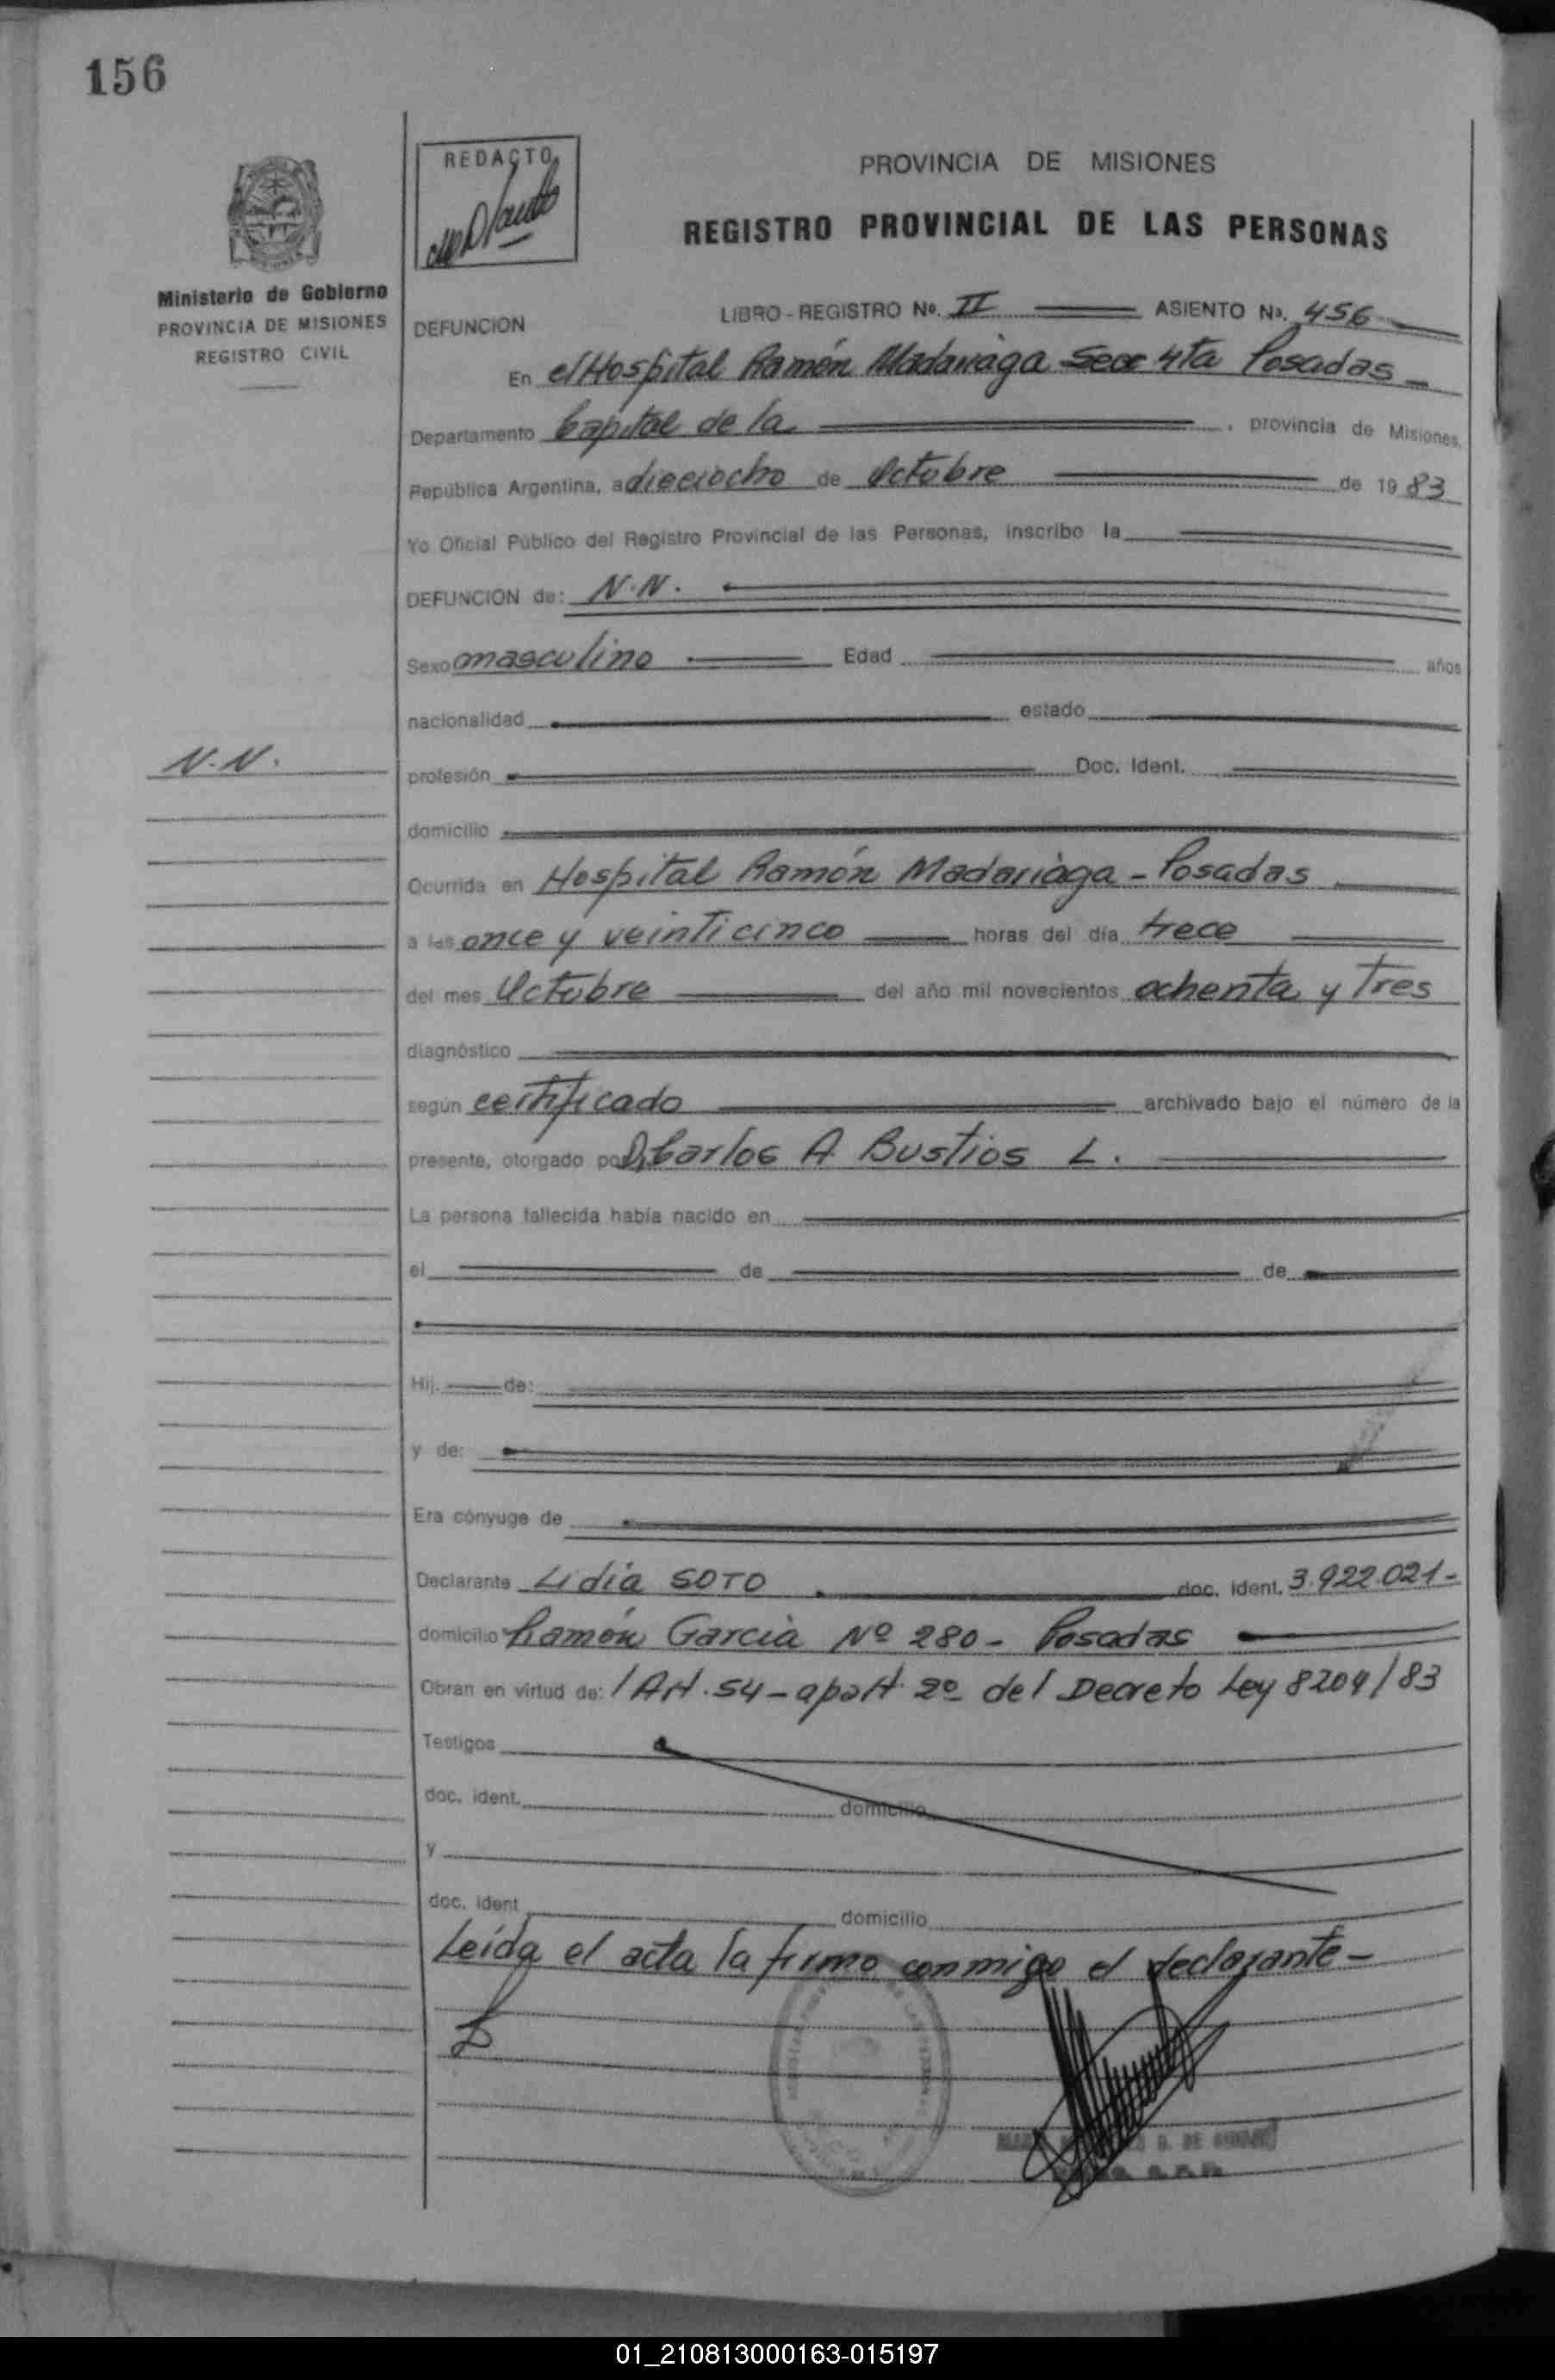 156
REDACTO
PROVINCIA DE MISIONES
REGISTRO PROVINCIAL DE LAS PERSONAS
Ministerio de Gobierno
PROVINCIA DE MISIONES
REGISTRO CIVIL
LIBRO - REGISTRO No. II ASIENTO No. 456
DEFUNCION
En el Hospital Ramón Madariaga Secc 4ta Posadas
Departamento Capital de la , provincia de Misiones,
República Argentina, a dieciocho de Octubre de 1983
Yo Oficial Público del Registro Provincial de las Personas, inscribo la
DEFUNCION de: N.N.
Sexo masculino Edad años
nacionalidad estado
N.N.
profesión Doc. Ident.
domicilio
Ocurrida en Hospital Ramón Madariàga - Posadas
a las once y veinticinco horas del día trece
del mes Octubre del año mil novecientos ochenta y Tres
diagnóstico
según certificado archivado bajo el número de la
presente, otorgado por Dr Carlos A Bustios L.
La persona fallecida había nacido en
el de de
Hij. de:
y de:
Era cónyuge de
Declarante Lidia SOTO doc. ident. 3.922.021-
domicilio Ramón Garcià Nº 280- Posadas
Obran en virtud de: /Art. 54-apart. 2º del Decreto Ley 8204/83
Testigos
doc. ident. domicilio
y
doc. ident domicilio
Leída el acta la firma conmigo el declarante-
01_210813000163-015197